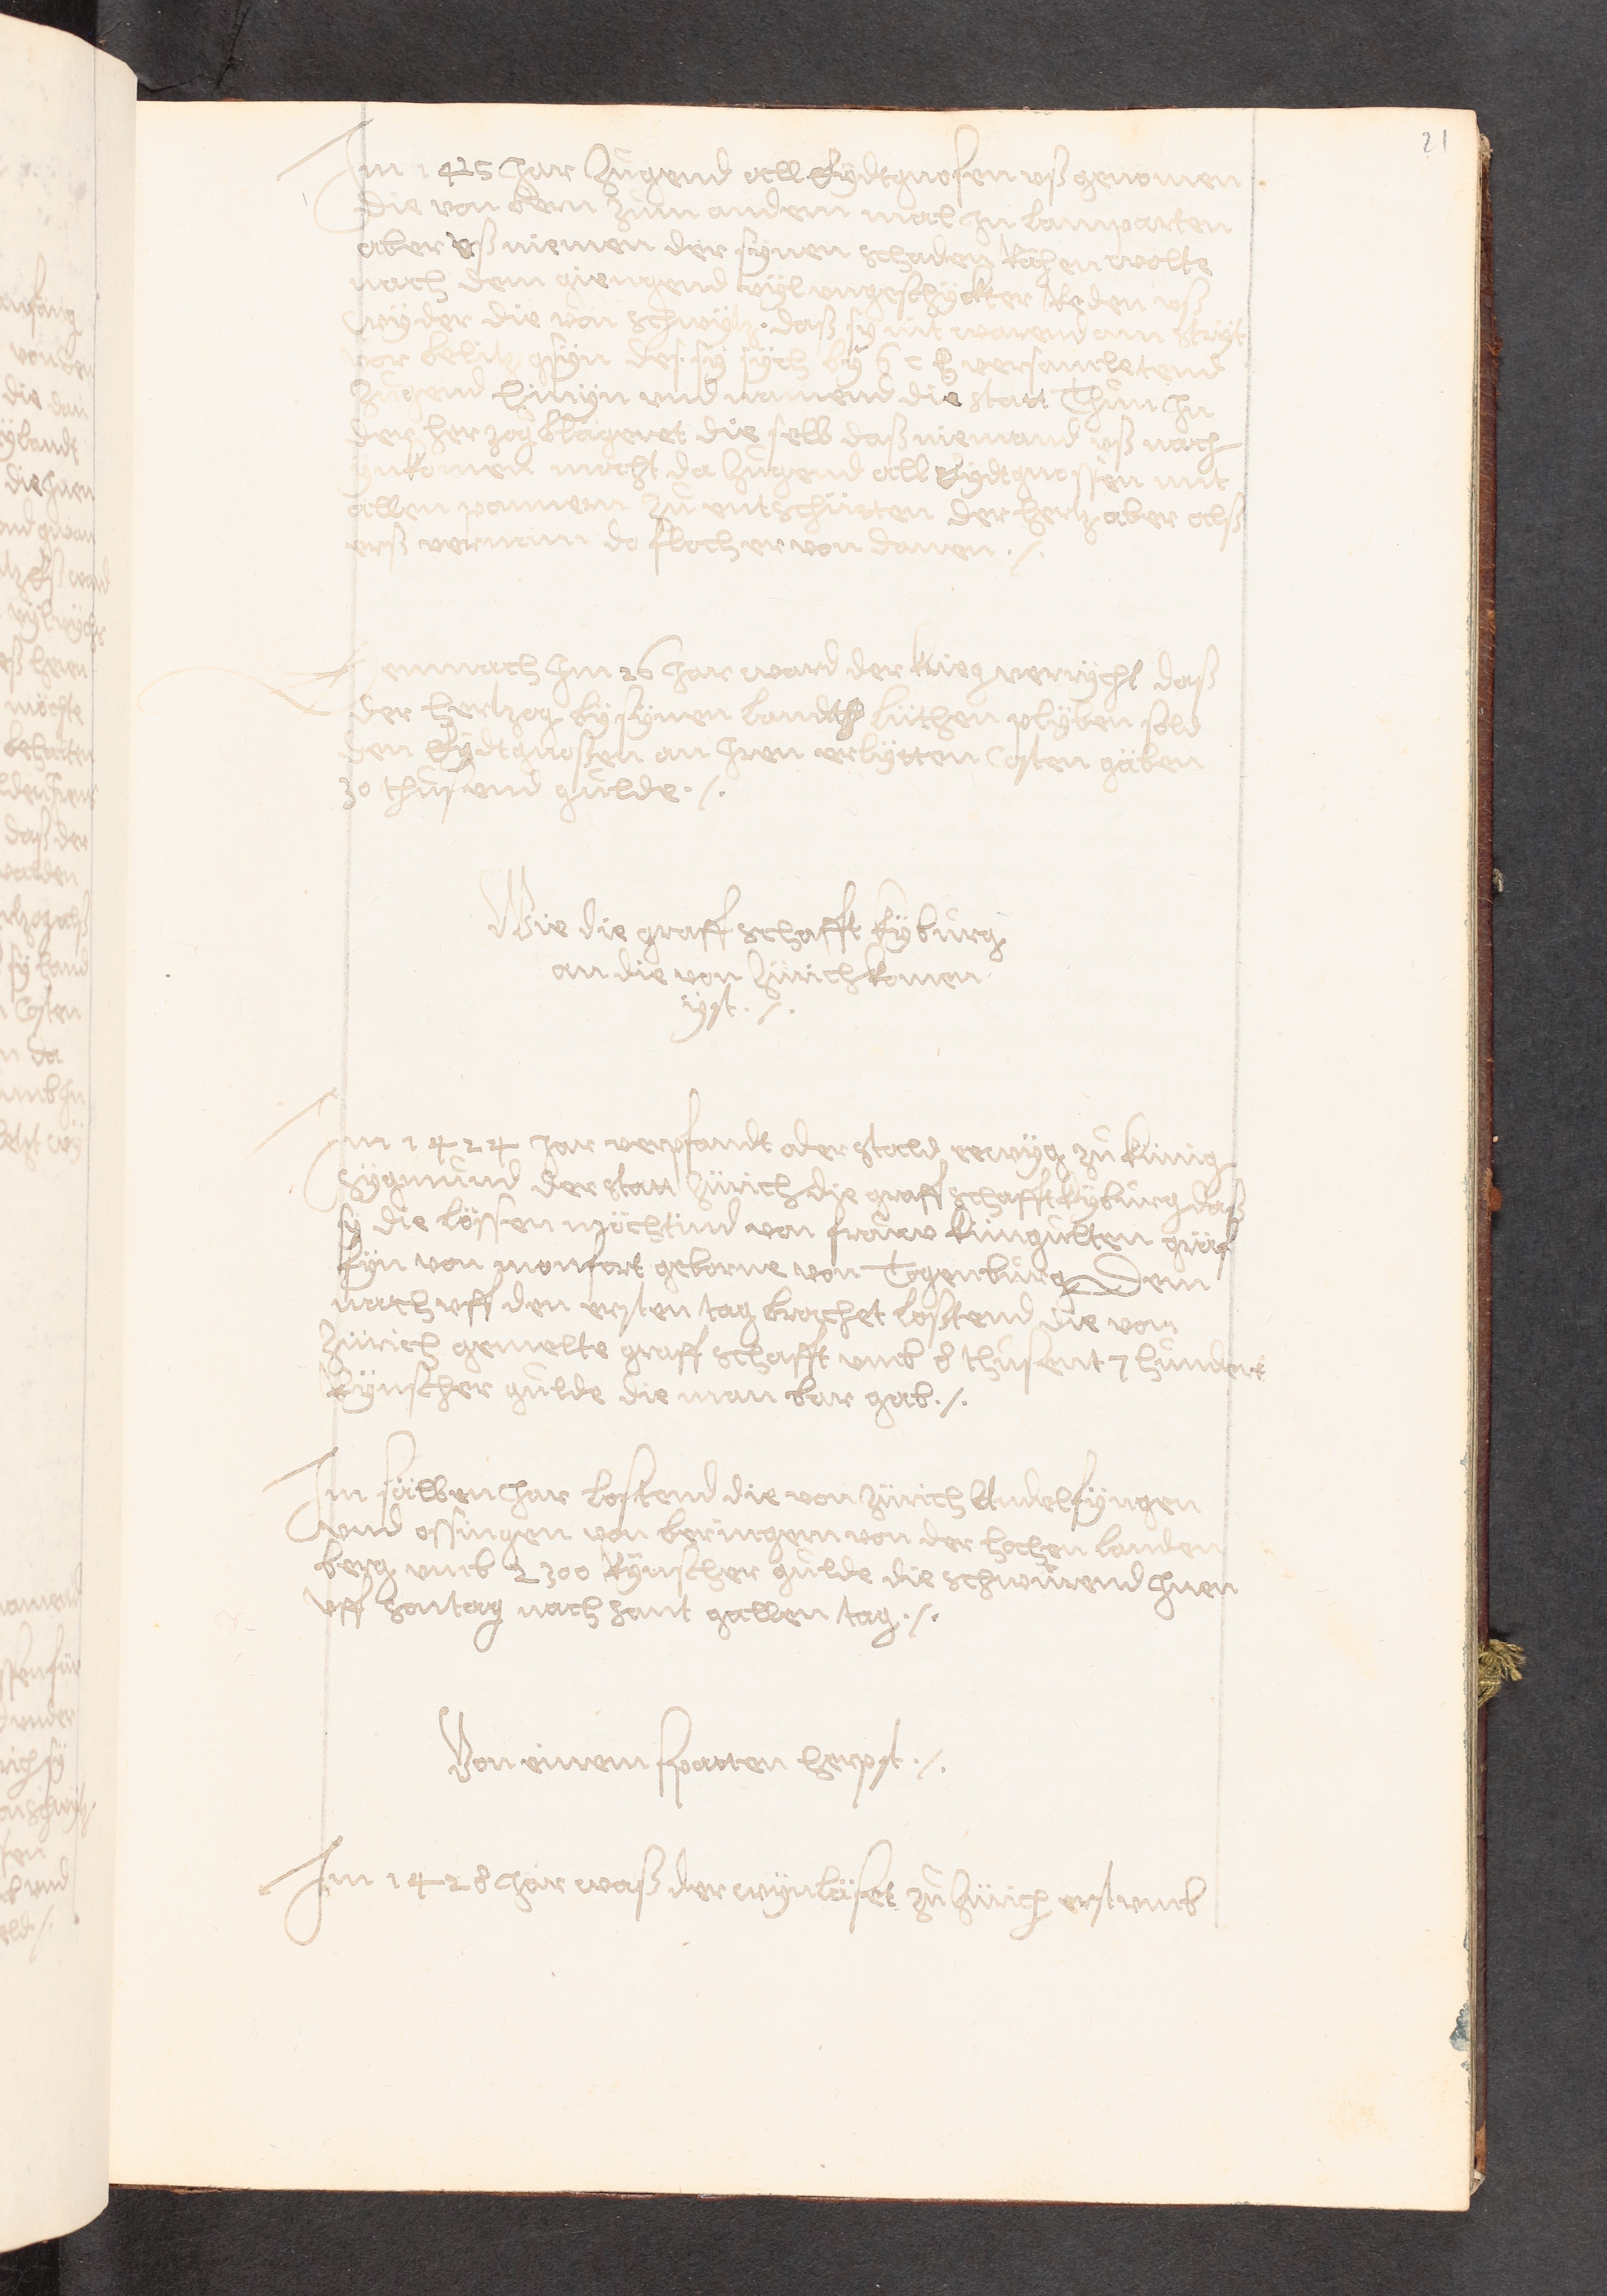 21
Im 1425 Jar Zugend all Eydtgnosen vß genomen
die von Bern zum andern mal in lamparten
aber vß niemen der synen schaden Rächen wolte
nach dem giengend vyl vngeschyckter Reden vß
wyder die von schwytz. daß sy nit warend am stryt
vor beletz gsyn des sy sych by 6 c versamletend
Zugend hinyn vnd namend die statt Thum In
der herzog blägeret die selb daß niemand vß nach
ynkomen mocht da Zugend all Eydtgnossen mit
allen pannern zu entschütten der hertz aber alß
erß vernam do floch er von danen ./.
Demnach Im 26 Jar ward der krieg verrycht daß
der hertzog by synen landts lüthen plyben sold
den Eydtgnoßen an Iren erlytten Costen gäben
30 thusend gulde ./.
Wie die graff schafft kyburg
an die von Zürich komen
yst ./.
Im 1424 Jar verpfandt oder stald eewyg zu künig
Sygmund der statt Zürich die graff schafft kyburg daß
sy die lössen möchtind von frauw küngulten gräf
fyn von monfort geborne von Togenburg Dem
nach vff den ersten tag brachet loßtend die von
Zürich gemelte graff schafft vmb 8 thusent 7 hundert
Rynscher gulde die man bar gab ./.
Im sälben Jar lostend die von Zürich Andelfyngen
vnd ossingen von beringern von der hochen landen
berg vmb 2300 Rynscher gulde die schwürend Inen
vff Sontag nach sant gallen tag ./.
Von einem spatten herpst ./.
Im 1428 Jar waß der wynläset zu Zürich erst vmb